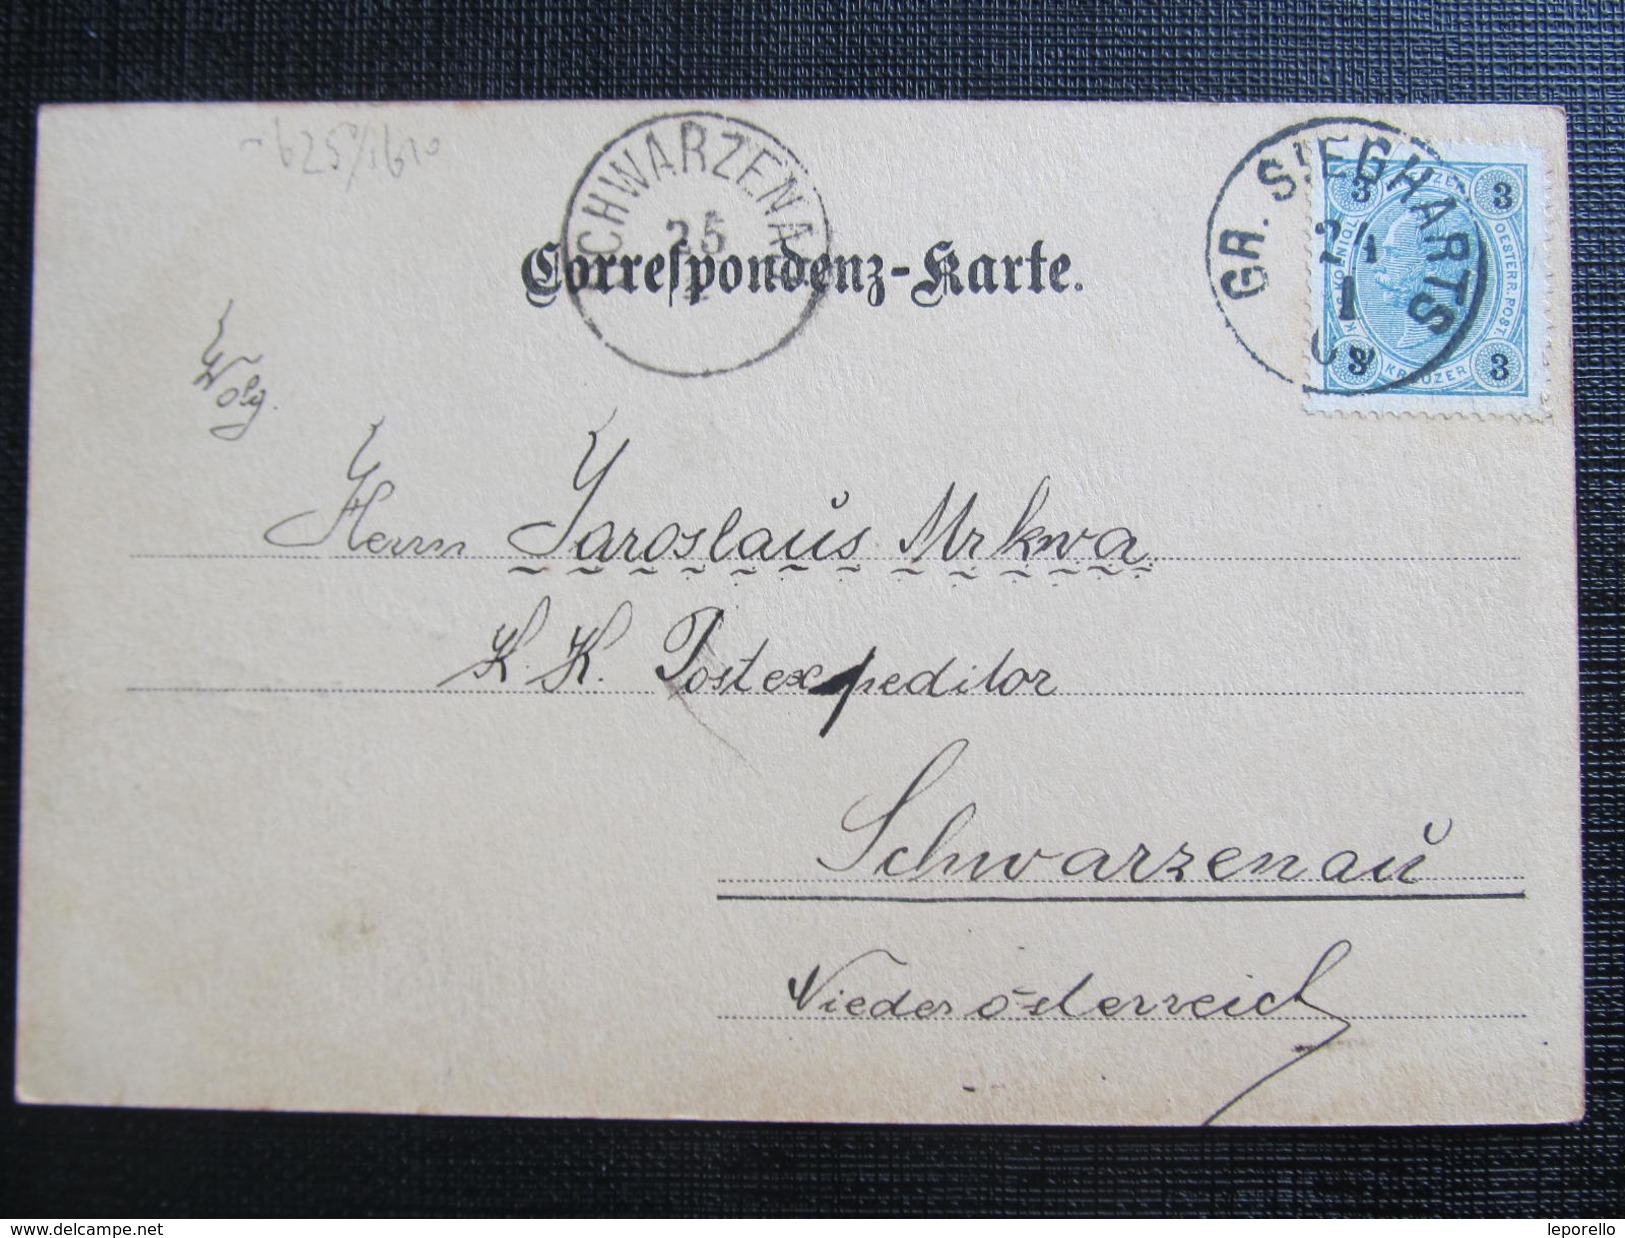 SCHWARZENAU
25
1
GR. SIEGHARTS
24
1
3 3
KAIS. KÖNIGL. OESTERR. POST
3 3
KREUZER
Correspondenz-Karte.
Herrn Jaroslaus Mrkwa
K. K. Postexpeditor
Schwarzenau
Niederösterreich
www.delcampe.net
leporello